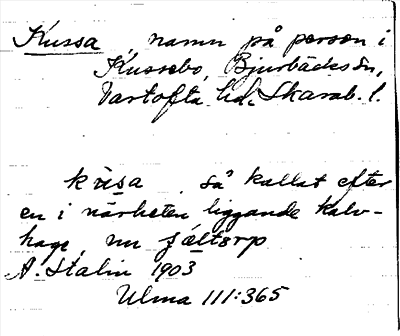 Kussa, namn på person i
Kussebo, Bjurbäcks sn,
Vartofta hd. Skarab. l.
kusa så kallat efter
en i närheten liggande kalv-
hage, nu fältorp
A. Stalin 1903
Ulma 111:365